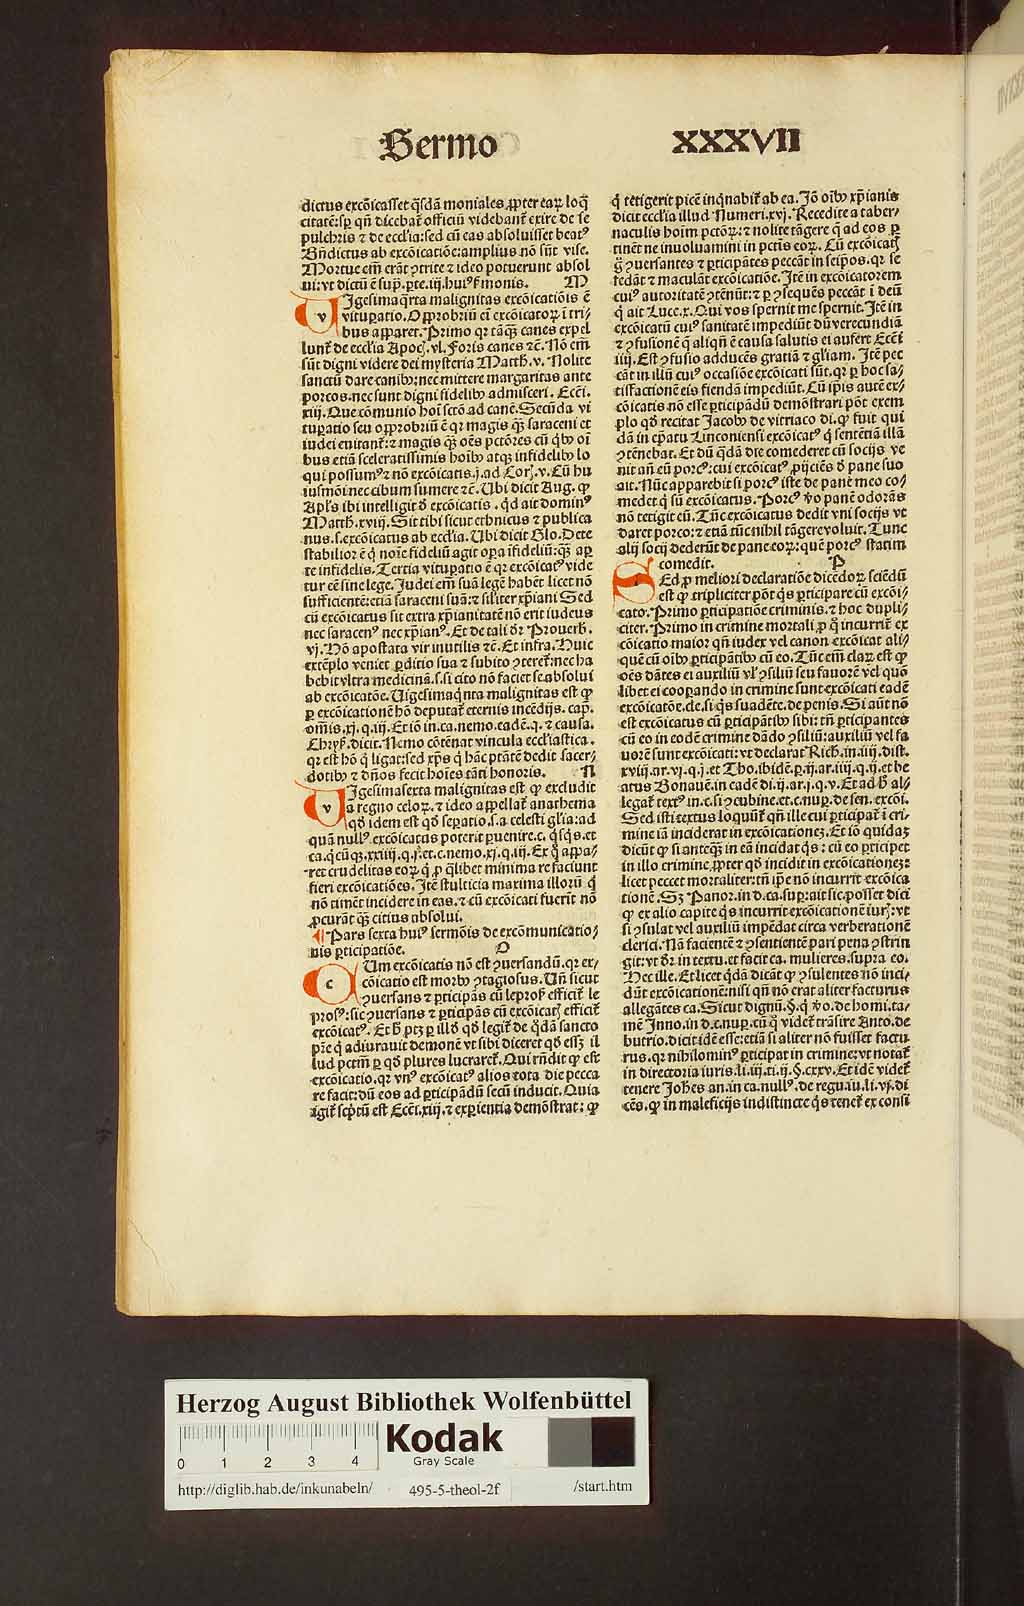 Sermo XXXVII
dictus excōicasset q̄sdā moniales ꝓpter eaꝝ loq̄
citatē: sꝑ qn̄ dicebat᷑ officiū videbant᷑ exire de se
pulchris ⁊ de ecclīa: sed cū eas absoluisset beatꝰ
Bn̄dictus ab excōicatiōe: amplius nō sūt vise.
Mortue em̄ erāt ꝯtrite ⁊ ideo potuerunt absol
ui: vt dictū ē sup̄. ꝑte. iij. huiꝰ sermonis. M
VIgesimaq̄rta malignitas excōicatiōis ē
vituꝑatio. Opprobriū em̄ excōicatoꝝ ī tri/
bus apparet. Primo qꝛ tāq̄ꝫ canes expel
lunt᷑ de ecclīa Apoc. vl. Foris canes ⁊c̄. Nō em̄
sūt digni videre dei mysteria Matth. v. Nolite
sanctū dare canibꝰ: nec mittere margaritas ante
porcos. nec sunt digni fidelibꝰ admisceri. Ecci.
xiij. Que cōmunio hoī sctō ad canē. Secūda vi
tuꝑatio seu opprobriū ē qꝛ magis q̄ꝫ saraceni et
iudei euitant᷑: ⁊ magis q̄ꝫ oēs pctōres cū qbꝰ oī
bus etiā sceleratissimis hoībꝰ atqꝫ infidelibꝰ lo
qui possumꝰ ⁊ nō excōicatis. j. ad Cor. v. Cū hu
iusmōi nec cibum sumere ⁊c̄. Ubi dicit Aug. ꝙ
Apl̄s ibi intelligit ð excōicatis. qd ait dominꝰ
Matth. xviij. Sit tibi sicut ethnicus ⁊ publica
nus. s. excōicatus ab ecclīa. Ubi dicit Glo. Dete
stabilior ē q̄ noīe fideliū agit oꝑa īfideliū: q̄ꝫ aꝑ
te infidelis. Tertia vituꝑatio ē qꝛ excōicatꝰ vide
tur eē sine lege. Judei em̄ suā legē habēt licet nō
sufficientē: etiā saraceni suā: ⁊ sil̄iter xp̄iani Sed
cū excōicatus sit extra xp̄ianitatē nō erit iudeus
nec saracenꝰ nec xp̄ianꝰ. Et de tali dr̄ Prouerb.
vj. Hō apostata vir inutilis ⁊c̄. Et infra. Huic
extēplo veniet ꝑditio sua ⁊ subito ꝯteret᷑: nec ha
bebit vltra medicinā. s. si cito nō faciet se absolui
ab excōicatōe. Uigesimaq̄nta malignitas est ꝙ
ꝑ excōicationē hō deputat᷑ eternis incēdijs. cap.
om̄is. xj. q. iij. Et iō in. ca. nemo. eadē. q. ⁊ causa.
Chrys. dicit. Nemo cōtēnat vincula eccl̄iastica.
qꝛ est hō q̄ ligat: sed xp̄s q̄ hāc ptātē dedit sacer/
dotibꝰ ⁊ dn̄os fecit hoīes tāti honoris. N
VIgesimasexta malignitas est ꝙ excludit
a regno celoꝝ. ⁊ ideo appellat᷑ anathema
qð idem est qð seꝑatio. s. a celesti gl̄ia: ad
quā nullꝰ excōicatus poterit ꝑuenire. c. q̄sq̄s. et
ca. q̄cūqꝫ. xxiij. q. j. et. c. nemo. xj. q. iij. Ex q̄ appa/
ret crudelitas eoꝝ q̄ ꝓ q̄libet minima re faciunt
fieri excōicatiōes. Itē stulticia maxima illorū q̄
nō timēt incidere in eas. ⁊ cū excōicati fuerit nō
ꝓcurāt q̄ꝫ citius absolui.
¶ Pars sexta huiꝰ sermōis de excōmunicatio/
nis ꝑticipatiōe. O
CUm excōicatis nō est ꝯuersandū. qꝛ ex/
cōicatio est morbꝰ ꝯtagiosus. Un̄ sicut
ꝯuersans ⁊ ꝑticipās cū leproso efficit᷑ le
prosꝰ: sic ꝯuersans ⁊ ꝑticipās cū excōicato efficit᷑
excōicatꝰ. Et h̄ ptꝫ ꝑ illð qð legit᷑ de q̄dā sancto
pr̄e q̄ adiurauit demonē vt sibi diceret qð esset il
lud pctm̄ ꝑ qð plures lucraret᷑. Qui rn̄dit ꝙ est
excōicatio. qꝛ vnꝰ excōicatꝰ alios tota die pecca
re facit: dū eos ad ꝑticipādū secū inducit. Quia
igit᷑ sc̄ptū est Ecci. xiij. ⁊ exꝑientia demōstrat: ꝙ
q̄ tetigerit picē inq̄nabit᷑ ab ea. Jō oībꝰ xp̄ianis
dicit ecclīa illud Numeri. xvj. Recedite a taber/
naculis hoīm pctōꝝ: ⁊ nolite tāgere q̄ ad eos ꝑ
tinēt ne inuoluamini in pctīs eoꝝ. Cū excōicatꝭ
g̊ ꝯuersantes ⁊ ꝑticipātes peccāt in seip̄os. qꝛ se
fedāt ⁊ maculāt excōicatiōe. Itē in excōicatorem
cuiꝰ autoritatē ꝯtēnūt: ⁊ ꝑ ꝯsequēs peccāt ī deū
q̄ ait Luce. x. Qui vos spernit me spernit. Itē in
excōicatū cuiꝰ sanitatē impediūt dū verecundiā
⁊ ꝯfusionē q̄ aliqn̄ ē causa salutis ei aufert Ecci
iiij. Est ꝯfusio adducēs gratiā ⁊ gl̄iam. Itē pec
cāt in illū cuiꝰ occasiōe excōicati sūt. qꝛ ꝑ hoc sa/
tisfactionē eis fiendā impediūt. Cū ip̄is autē ex/
cōicatis nō esse ꝑticipādū demōstrari pōt exem
plo qð recitat Jacobꝰ de vitriaco di. ꝙ fuit qui
dā in ep̄atu Linconiensi excōicatꝰ q̄ sententiā illā
ꝯtēnebat. Et dū q̄dā die comederet cū socijs ve
nit añ eū porcꝰ: cui excōicatꝰ ꝓijciēs ð pane suo
ait. Nūc apparebit si porcꝰ iste de pane meo co/
medet q̄ sū excōicatus. Porcꝰ v̊o panē odorās
nō tetigit eū. Tūc excōicatus dedit vni socijs vt
daret porco: ⁊ etiā tūc nihil tāgere voluit. Tunc
alij socij dederūt de pane eoꝝ: quē porcꝰ statim
comedit. P
SEd ꝓ meliori declaratiōe dicēdoꝝ sciēdū
est ꝙ tripliciter pōt q̄s ꝑticipare cū excōi/
cato. Primo ꝑticipatiōe criminis. ⁊ hoc dupli/
citer. Primo in crimine mortali ꝓ q̄ incurrit᷑ ex
cōicatio maior qn̄ iudex vel canon excōicat ali/
quē cū oībꝰ ꝑticipātibꝰ cū eo. Tūc em̄ claꝝ est ꝙ
oēs dātes ei auxiliū vl̓ ꝯsiliū seu fauorē vel quō
libet ei cooꝑando in crimine sunt excōicati eadē
excōicatōe. de. si q̄s suadēte. de penis. Si aūt nō
est excōicatus cū ꝑticipātibꝰ sibi: tn̄ ꝑticipantes
cū eo in eodē crimine dādo ꝯsiliū: auxiliū vel fa
uorē sunt excōicati: vt declarat Rich. in. iiij. dist.
xviij. ar. vj. q. j. et Tho. ibidē. ꝑ. ij. ar. iiij. q. ij. et be
atus Bonauē. in cadē di. ij. ar. j. q. v. Et ad h̄ al/
legat᷑ textꝰ in. c. si ꝯcubine. et. c. nuꝑ. de sen. excōi.
Sed isti textus loquūt᷑ qn̄ ille cui ꝑticipat᷑ ī cri/
mine iā inciderat in excōicationeꝫ. Et iō quidaꝫ
dicūt ꝙ si anteq̄ꝫ in eā incidat q̄s: cū eo ꝑticipet
in illo crimine ꝓpter qð incidit in excōicationeꝫ:
licet peccet mortaliter: tn̄ ip̄e nō incurrit excōica
tionē. Sꝫ Panor. in d. ca. suꝑ: ait sic. posset dici
ꝙ ex alio capite q̄s incurrit excōicationē iurꝭ: vt
si ꝯsulat vel auxiliū impēdat circa verberationē
clerici. Nā facientē ⁊ ꝯsentientē pari pena ꝯstrin
git: vt dr̄ in textu. et facit ca. mulieres. supra eo.
Hec ille. Et licet q̄dā dicāt ꝙ ꝯsulentes nō inci/
dūt excōicationē: nisi qn̄ nō erat aliter facturus
allegātes ca. Sicut dignū. §. q̄ v̊o. de homi. ta/
mē Inno. in d. c. nuꝑ. cū q̄ videt᷑ trāsire Anto. de
butrio. dicit idē esse: etiā si aliter nō fuisset factu
rus. qꝛ nihilominꝰ ꝑticipat in crimine: vt notat᷑
in directoria iuris. li. iij. ti. ij. §. cxxv. Et idē videt᷑
tenere Joh̄es an. in ca. nullꝰ. de regu. iu. li. vj. di
cēs. ꝙ in maleficijs indistincte q̄s tenet᷑ ex consi
Herzog August Bibliothek Wolfenbüttel
0 1 2 3 4
Kodak
Gray Scale
http://diglib.hab.de/inkunabeln/ 495-5-theol-2f /start.htm